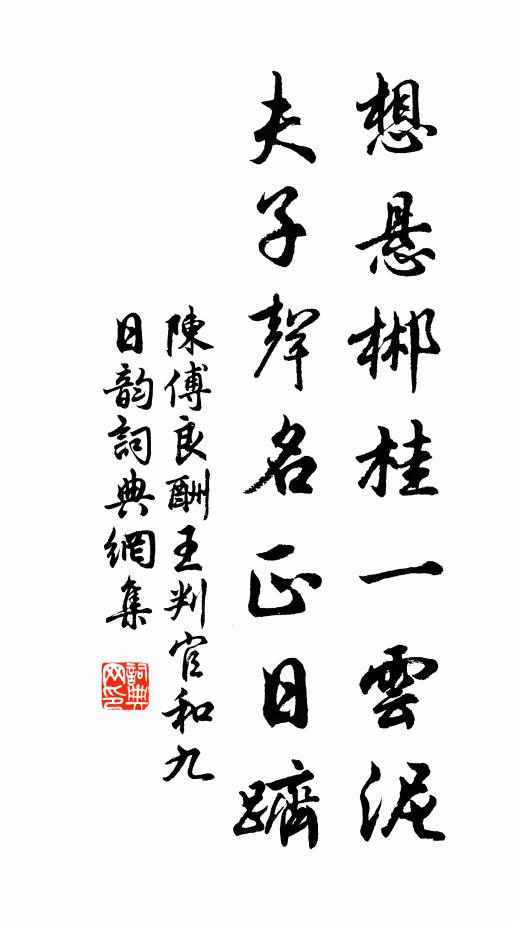 想悬郴桂一雲泥
夫子聲名正日躋
陳傅良酬王判官和九
日韵詞典網集
詞典網印